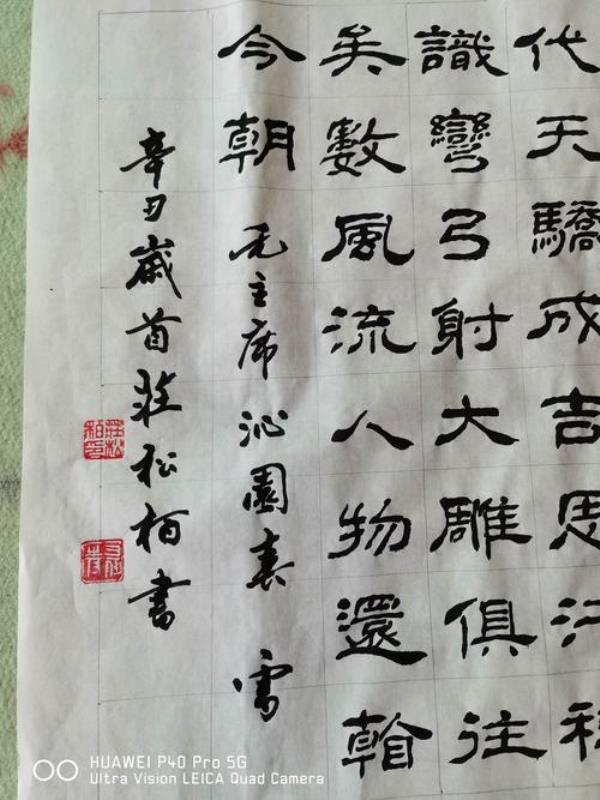 代天驕成吉思汗
識彎弓射大雕俱往
矣數風流人物還
今朝 毛主席 沁園春 雪
辛丑歲首莊松柏書
莊松柏印
HUAWEI P40 Pro 5G
Ultra Vision LEICA Quad Camera